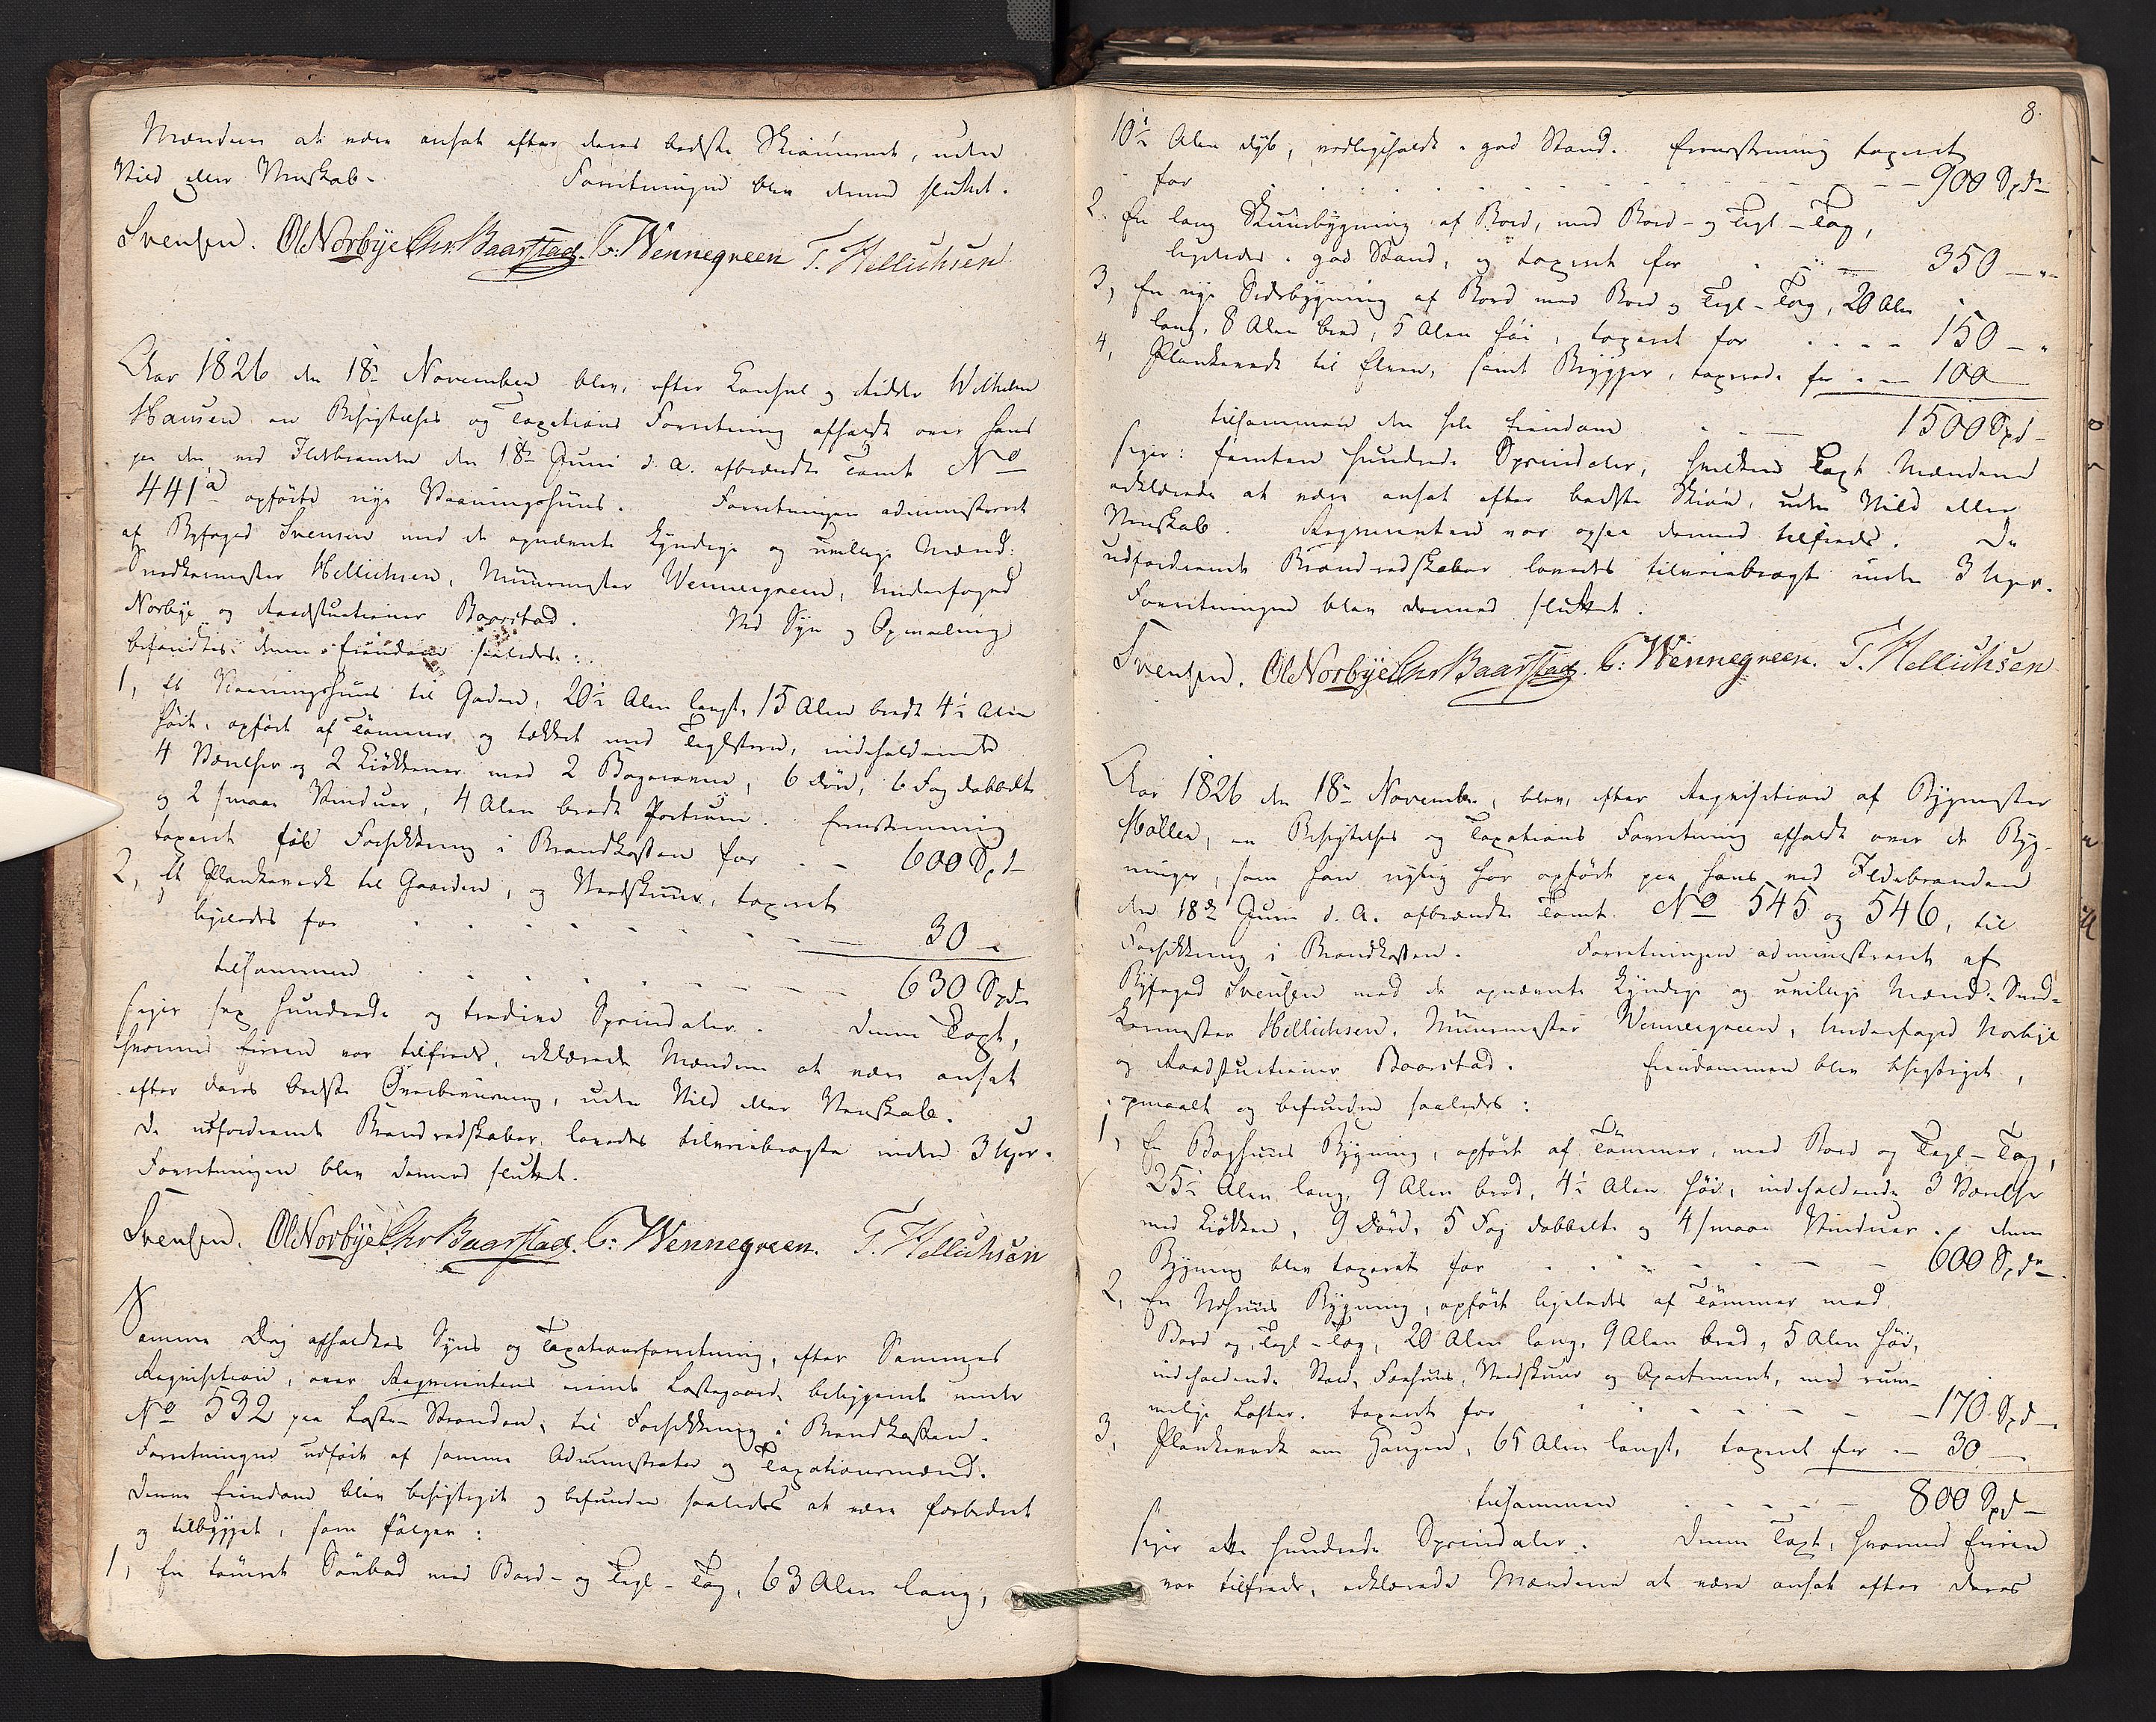 Mændene at være ansat efter deres bedste Skiønnende, uden
Vild eller Venskab. Forretningen blev dermed sluttet.
Svensen. Ol Norbÿe Chr. Baarstad. C: Wennegreen T. Hellichsen
Aar 1826 den 18de November blev, efter Consul og Ridder Wilhelm
Hansen en Besigtelses og Taxations Forretning afholdt over hans
paa den ved Ildebranden den 18de Juni d. A. afbrændte Tomt No
441a opførte nye Vaaningshuus. Forretningen administreret
af Byfoged Svensen med de opnævnte kyndige og uvillige Mænd:
Snedkermester Hellichsen, Muurmester Wennegreen, Underfoged
Norbye og Raadstuetiener Baarstad. Ved Syn og Opmaaling
befandtes denne Eiendom saaledes:
1, Et Vaaningshuus til Gaden, 20½ Alen langt, 15 Alen bredt 4½ Alen
høit, opført af Tømmer og tækket med Teglsteen, indeholdende
4 Værelser og 2 Kiøkkener med 2 Bagerovne, 6 Døre, 6 Fag dobbelte
og 2 smaae Vinduer, 4 Alen bredt Portrum. Eensstemmig
taxeret til Forsikkring i Brandkassen for - - 600 Spd
2, Et Plankeverk til Gaarden, og Vedskuur, taxeret
ligeledes for - - - 30 -
tilsammen - - - 630 Spd
siger sex hundrede og tredive Speciedaler. Denne Taxt,
hvormed Eieren var tilfreds, erklærede Mændene at være ansat
efter deres bedste Overbeviisning, uden Vild eller Venskab.
De udfordrende Brandredskaber lovedes tilveiebragte inden 3 Uger.
Forretningen blev dermed sluttet.
Svensen. Ol Norbÿe Chr Baarstad. C: Wennegreen. T. Hellichsen
Samme Dag afholdtes Syns og Taxationsforretning, efter Sammes
Requisition, over Reqvirentens eiende Lastegaard, bebyggende under
No 532 paa Laste-Stranden, til Forsikkring i Brandkassen.
Forretningen udført af samme Administrator og Taxationsmænd.
Denne Eiendom blev besigtiget og befunden saaledes at være forbedret
og tilbygget, som følger:
1, En tømret Søebod med Bord- og Tegl-Tag, 63 Alen lang,
8.
10½ Alen dyb, vedligeholdt i god Stand. Eensstemmig taxeret
for - - - 900 Spd
2. En lang Skuurbygning af Bord, med Bord- og Tegl-Tag,
ligeledes i god Stand, og taxeret for - - 350 - "
3, En nye Sidebygning af Bord med Bord og Tegl-Tag, 20 Alen
lang, 8 Alen bred, 5 Alen høi, taxeret for - - - - 150 - "
4, Plankeverk til Elven, samt Brygger, taxerede for - - 100
tilsammen den hele Eiendom - - 1500 Spd
siger: femten hundrede Speciedaler, hvilken Taxt Mændene
erklærede at være ansat efter bedste Skiøn, uden Vild eller
Venskab. Reqvirenten var ogsaa dermed tilfreds. De
udfordrende Brandredskaber lovedes tilveiebragt inden 3 Uger.
Forretningen blev dermed sluttet.
Svensen. Ol Norbÿe Chr Baarstad. C: Wennegreen. T. Hellichsen
Aar 1826 den 18de November, blev, efter Requisition af Bygmester
Møller, en Besigtelses og Taxations Forretning afholdt over de Byg-
ninger, som han nylig har opført paa hans ved Ildebranden
den 18de Juni d. A. afbrændte Tomt No 545 og 546, til
Forsikkring i Brandkassen. Forretningen administreret af
Byfoged Svensen med de opnævnte kyndige og uvillige Mænd, Sned-
kermester Hellichsen, Muurmester Wennegreen, Underfoged Norbye
og Raadstuetiener Baarstad. Eiendommen blev besigtiget,
opmaalt og befunden saaledes:
1, En Baghuus Bygning, opført af Tømmer, med Bord og Tegl-Tag,
25½ Alen lang, 9 Alen bred, 4½ Alen høi, indeholdende 3 Værelser
med Kiøkken, 9 Døre, 5 Fag dobbelte og 4 smaae Vinduer. Denne
Bygning blev taxeret for - - - 600 Spd
2, En Udhuus Bygning, opført ligeledes af Tømmer med
Bord og Tegl-Tag, 20 Alen lang, 9 Alen bred, 5 Alen høi,
indeholdende Stald, Fæehuus, Vedskuur og Apartement, med rum-
melige Lofter. taxeret for - - - 170 Spd
3, Plankeverk om Haugen, 65 Alen langt, taxeret for - 30 -
tilsammen - - - 800 Spd
siger otte hundrede Speciedaler. Denne Taxt, hvormed Eieren
var tilfreds, erklærede Mændene at være ansat efter deres